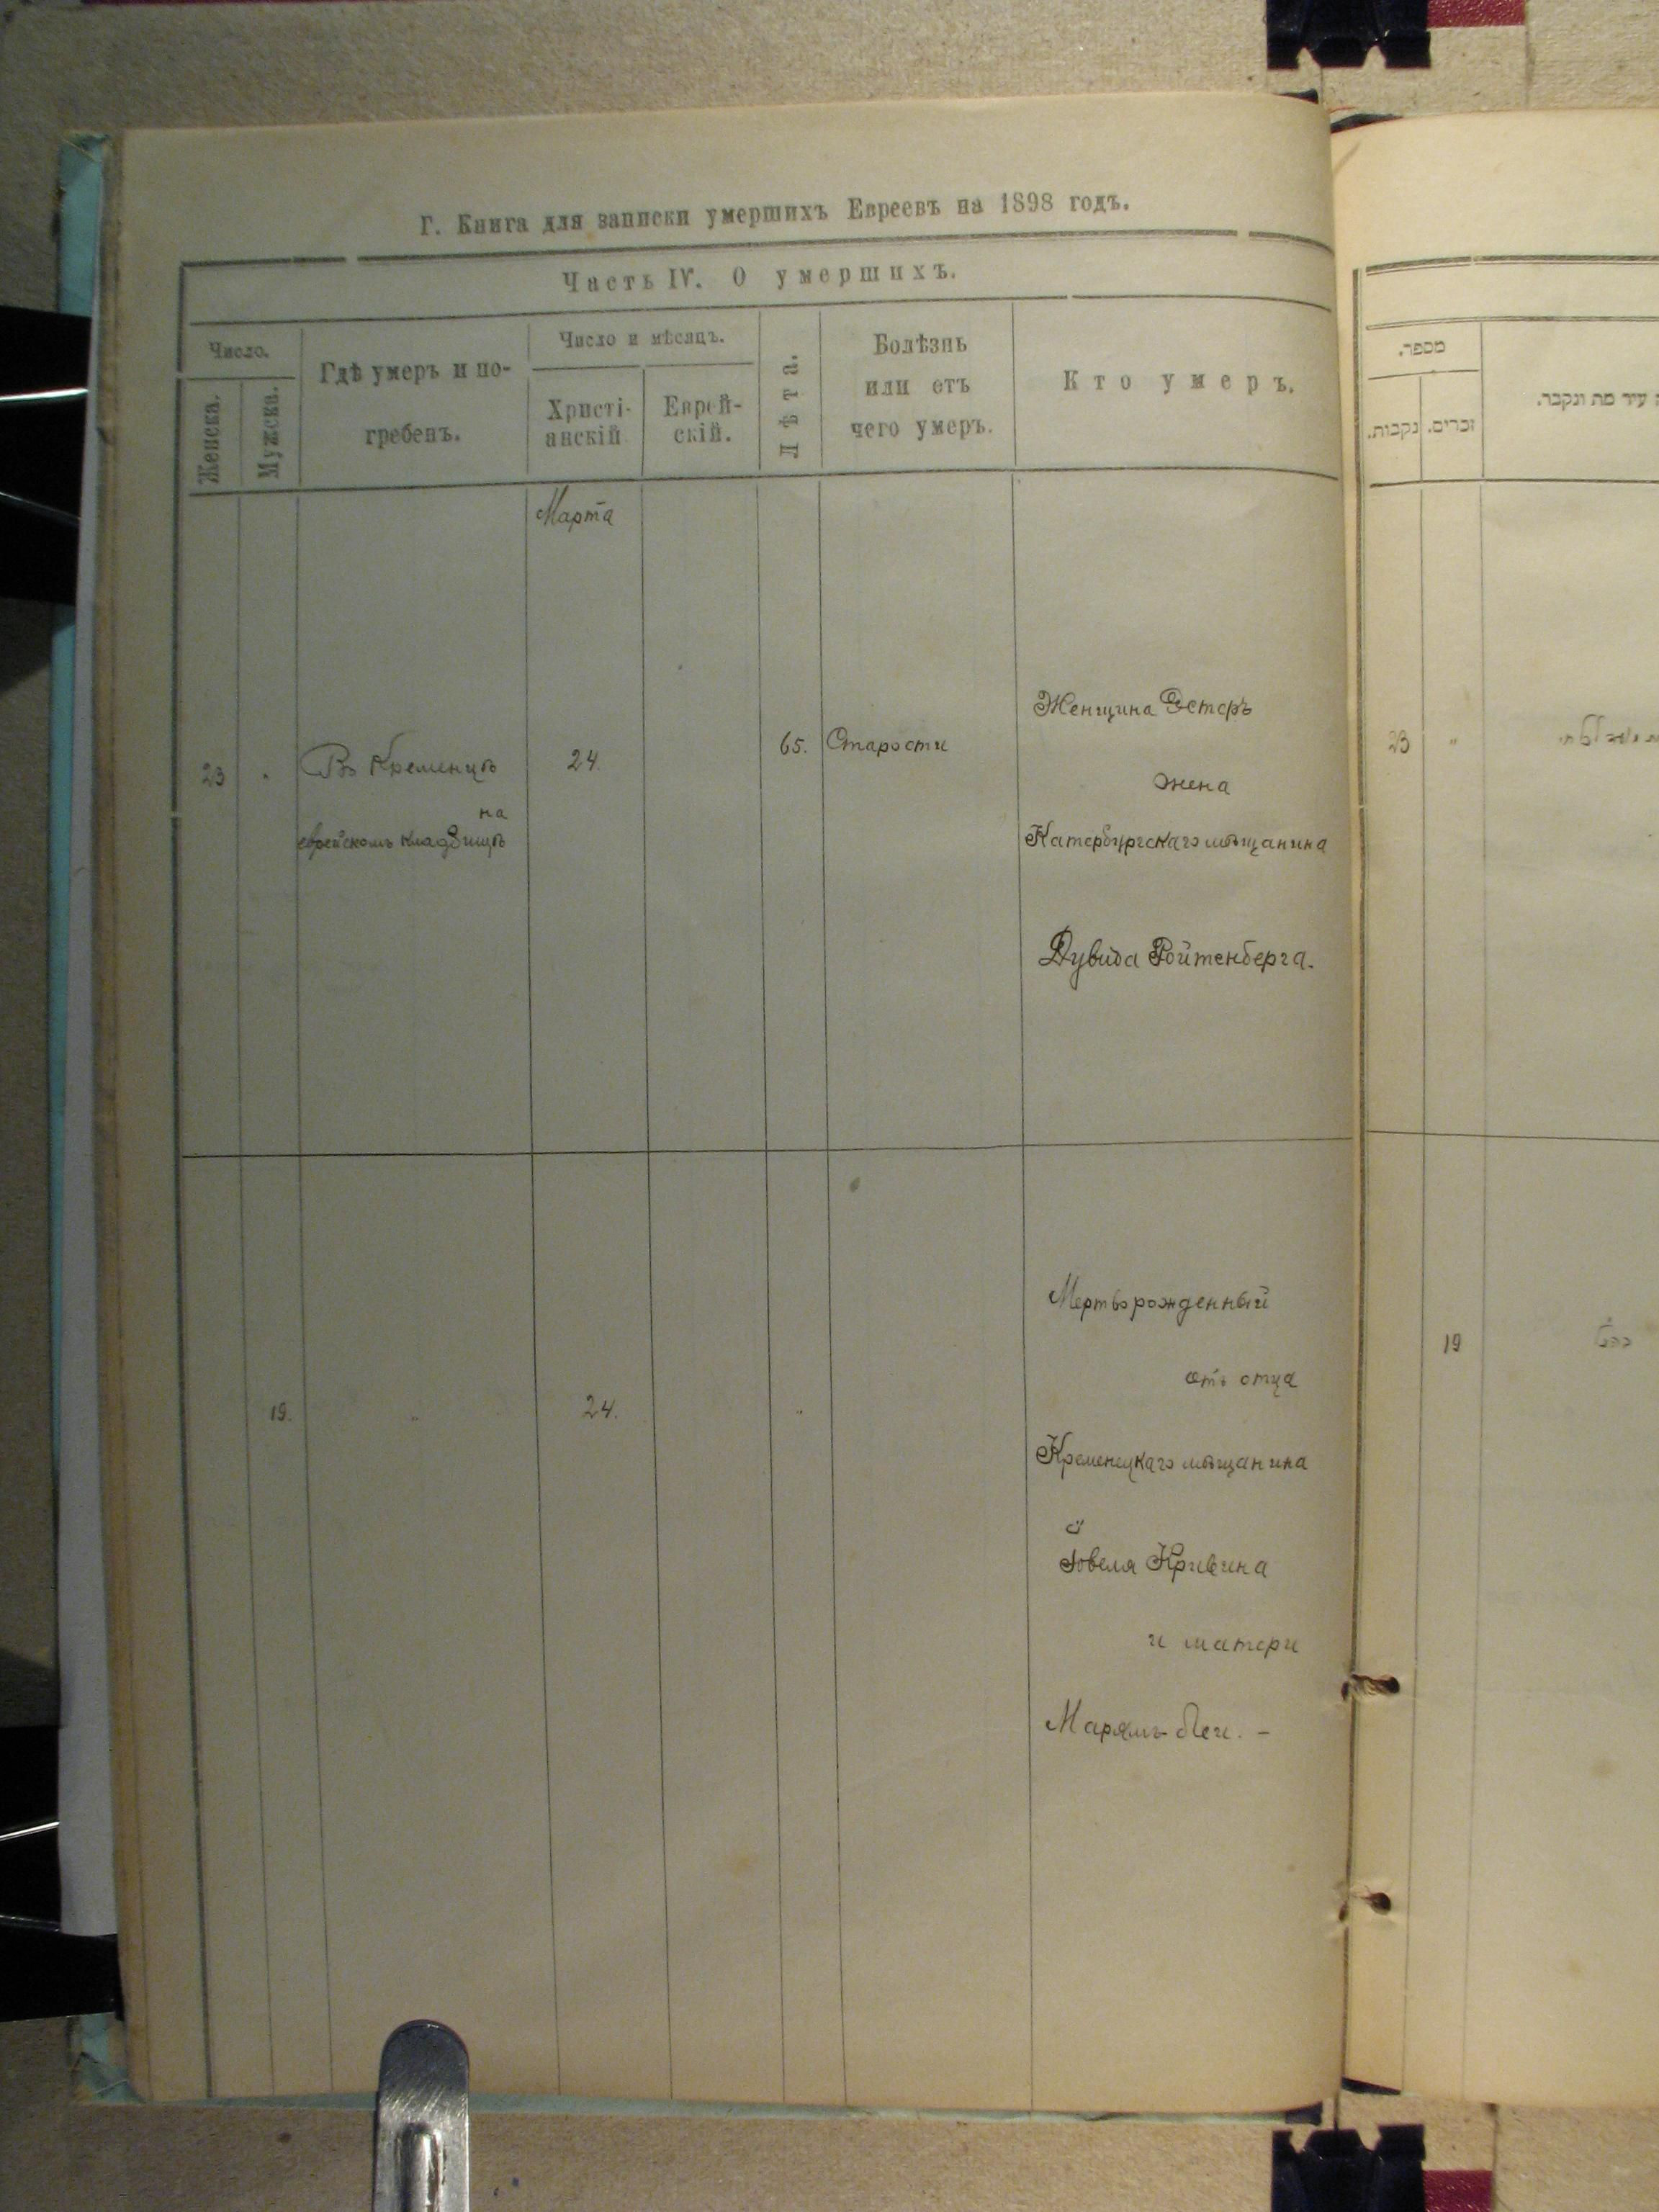 Г. Книга для записки умершихъ Евреевъ на 1898 годъ.
Часть IV. О умершихъ.
Число.
Женска.
Мужска.
Гдѣ умеръ и по-
гребенъ.
Число и мѣсяцъ.
Христі-
анскій
Еврей-
скій.
Лѣта.
Болѣзнь
или отъ
чего умеръ.
Кто умеръ.
Марта
23
Въ Кременцѣ
на
еврейскомъ кладбищѣ
24.
65.
Старости
Женщина Эстеръ
жена
Катербургскаго мѣщанина
Дувида Ройтенберга.
19.
"
24.
"
Мертворожденный
отъ отца
Кременецкаго мѣщанина
Кривина
и матери
Марямъ Леи. –
מספר.
נקבות.
זכרים.
עיר מת ונקבר.
23
"
19